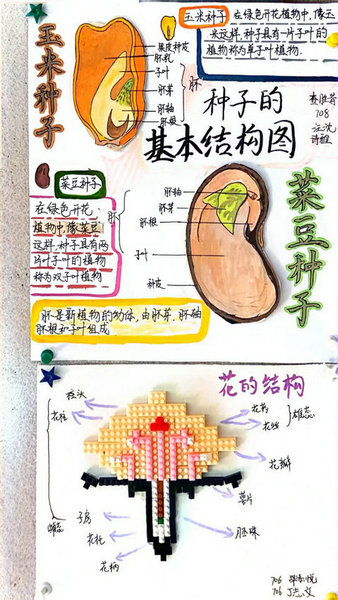 玉米种子
玉米种子
在绿色开花植物中,像玉
米这样,种子具有一片子叶的
植物称为单子叶植物.
果皮种皮
胚乳
子叶
胚芽
胚轴
胚根
胚
种子的
基本结构图
708
菜豆种子
在绿色开花
植物中,像菜豆
这样,种子具有两
片子叶的植物
称为双子叶植物
胚
胚轴
胚芽
胚根
子叶
种皮
菜豆种子
胚是新植物的幼体,由胚芽,胚轴
胚根和子叶组成
花的结构
柱头
花柱
子房
雌蕊
花托
花柄
花药
花丝
雄蕊
花瓣
萼片
胚珠
706
706